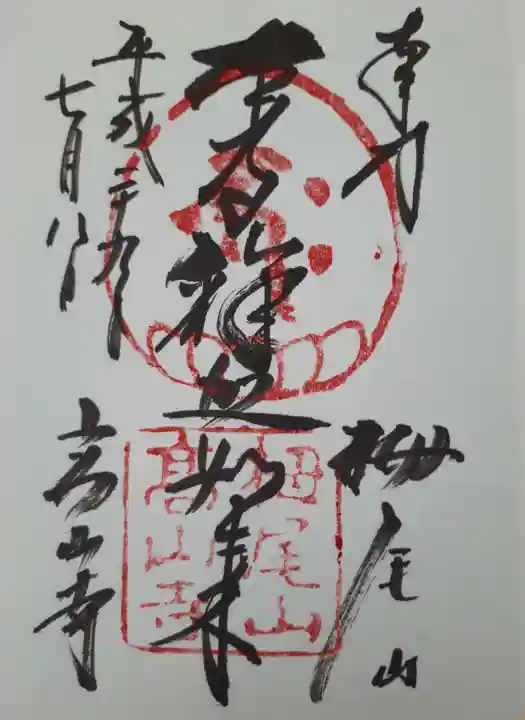 奉拝
栂尾山
釋迦如来
平成二十九
七月八日
高山寺
栂尾山
高山寺